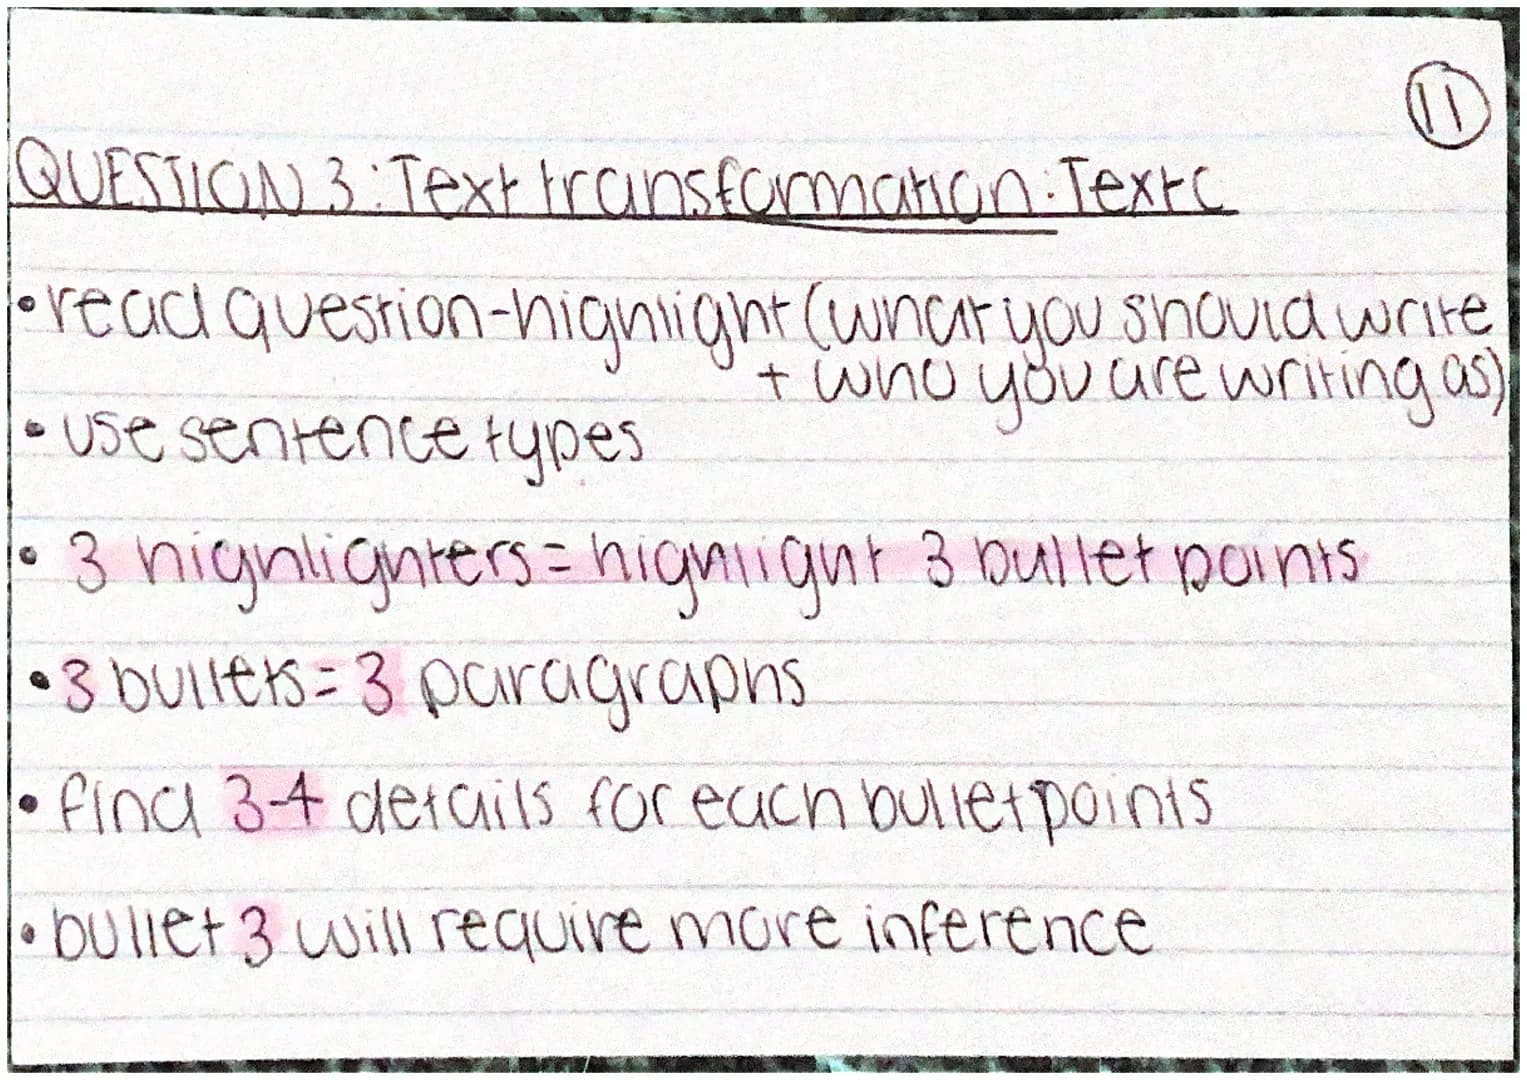 11
QUESTION 3: Text transformation: Text C
• read question - highlight (what you should write
+ who you are writing as)
• use sentence types
• 3 highlighters = highlight 3 bullet points
• 3 bullets = 3 paragraphs
• find 3-4 details for each bullet points
• bullet 3 will require more inference